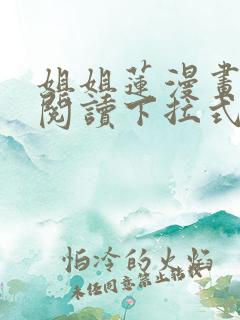 姐姐蓮漫畫
閱讀下拉式
怕冷的火焰
未經同意禁止轉載